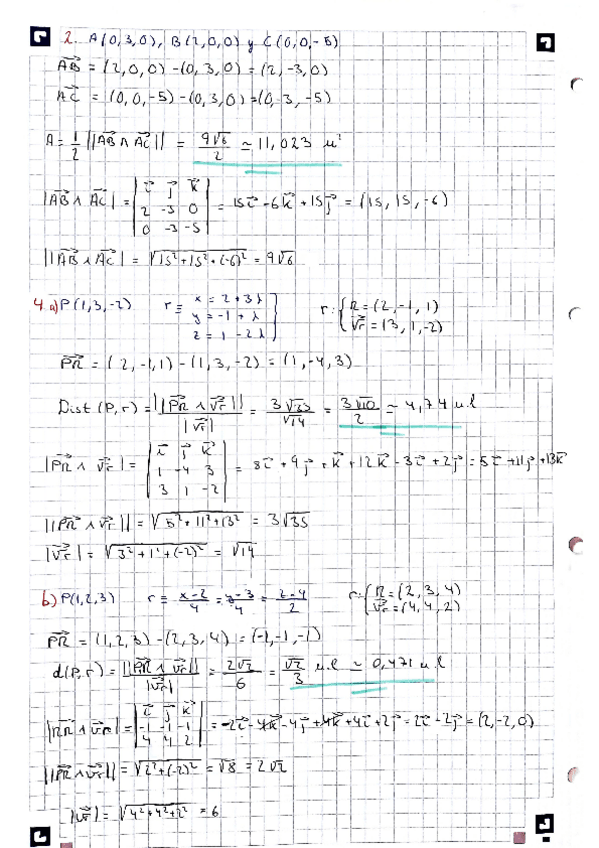 2. A(0,3,0), B(2,0,0) y C(0,0,-5)
AB = (2,0,0) - (0,3,0) = (2,-3,0)
AC = (0,0,-5) - (0,3,0) = (0,-3,-5)
A = 1/2 ||AB ∧ AC|| = 9√6/2 ≃ 11,023 u²
|AB ∧ AC| = | i j k | 2 -3 0 | 0 -3 -5 | = 15i - 6k + 15j = (15, 15, -6)
||AB ∧ AC|| = √15²+15²+(-6)² = 9√6
4. a) P(1,3,-2) r ≡ x = 2+3λ y = -1+λ z = 1-2λ r: { R = (2,-1,1) vr = (3,1,-2)
PR = (2,-1,1) - (1,3,-2) = (1,-4,3)
Dist (P,r) = ||PR ∧ vr||/|vr| = 3√35/√14 = 3√10/2 ≃ 4,74 u.l
|PR ∧ vr| = | i j k | 1 -4 3 | 3 1 -2 | = 8i + 9j + k + 12k - 3i + 2j = 5i + 11j + 13k
||PR ∧ vr|| = √5²+11²+13² = 3√35
|vr| = √3²+1²+(-2)² = √14
b) P(1,2,3) r ≡ x-2/4 = y-3/4 = z-4/2 r: { R = (2,3,4) vr = (4,4,2)
PR = (1,2,3) - (2,3,4) = (-1,-1,-1)
d(P,r) = ||PR ∧ vr||/|vr| = 2√2/6 = √2/3 u.l ≃ 0,471 u.l
|PR ∧ vr| = | i j k | -1 -1 -1 | 4 4 2 | = -2i - 4k - 4j + 4k + 4i + 2j = 2i - 2j = (2,-2,0)
||PR ∧ vr|| = √2²+(-2)² = √8 = 2√2
|vr| = √4²+4²+2² = 6